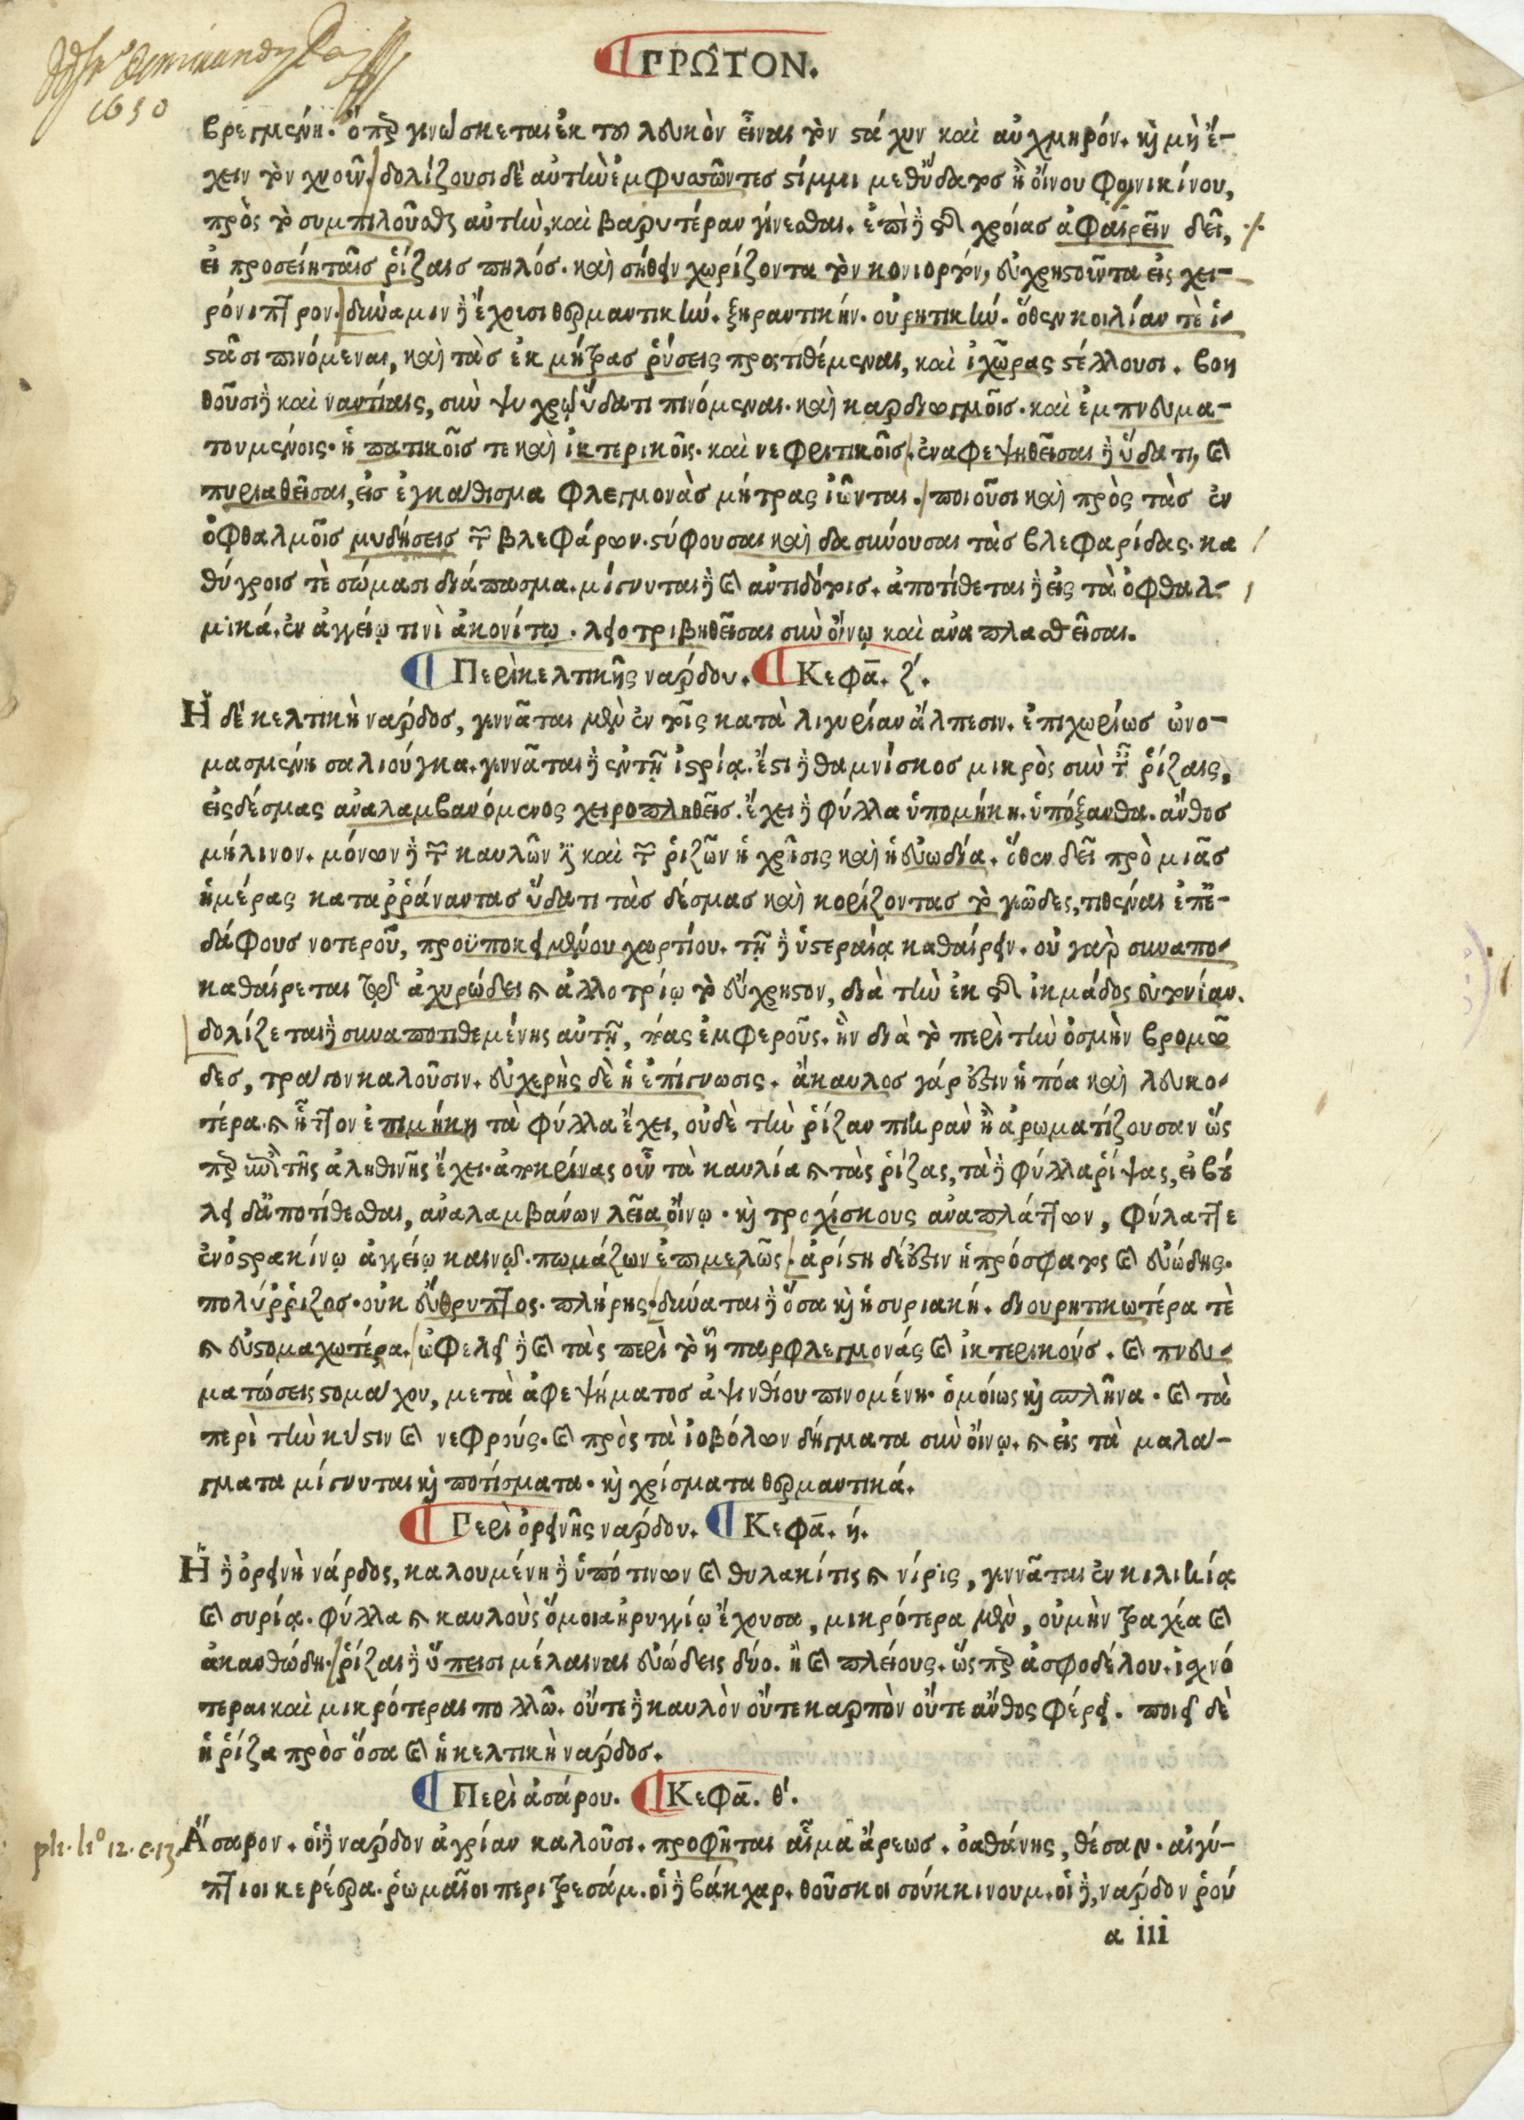 ΠΡΩ͂ΤΟΝ.
1650
βρεγμένη. ὅπερ γινώσκεται ἐκ τοῦ λευκὸν εἶναι τὸν στάχυν καὶ αὐχμηρόν. καὶ μὴ ἔ-
χειν τὸν χνοῦν. δολίζουσι δὲ αὐτὴν ἐμφυσῶντες στίμμι μεθ' ὕδατος ἢ οἴνου φοινικίνου,
πρὸς τὸ συμπιλοῦσθαι αὐτὴν, καὶ βαρυτέραν γίνεσθαι. ἐπὶ δὲ τῆς χρείας ἀφαιρεῖν δεῖ,
εἰ προσείη ταῖς ῥίζαις πηλός. καὶ σήθειν χωρίζοντα τὸν κονιορτὸν, εὐχρηστοῦντα εἰς χει-
ρόνιπτρον. δύναμιν δὲ ἔχουσι θερμαντικὴν. ξηραντικήν. οὐρητικὴν. ὅθεν κοιλίαν τὲ ἱ-
στᾶσι πινόμεναι, καὶ τὰς ἐκ μήτρας ῥύσεις προστιθέμεναι, καὶ ἰχῶρας στέλλουσι. βοη
θοῦσι δὲ καὶ ναυτίαις, σὺν ψυχρῷ ὕδατι πινόμεναι. καὶ καρδιωγμοῖς. καὶ ἐμπνευμα-
τουμένοις. ἡπατικοῖς τε καὶ ἰκτερικοῖς. καὶ νεφριτικοῖς. ἐναφεψηθεῖσαι δὲ ὕδατι, καὶ
πυριαθεῖσαι, εἰς ἐγκάθισμα φλεγμονὰς μήτρας ἰῶνται. ποιοῦσι καὶ πρὸς τὰς ἐν
ὀφθαλμοῖς μυδήσεις τῶν βλεφάρων. στύφουσαι καὶ δασύνουσαι τὰς βλεφαρίδας. κα
θύγροις τὲ σώμασι διάπασμα. μίγνυται δὲ καὶ ἀντιδότοις. ἀποτίθεται δὲ εἰς τὰ ὀφθαλ-
μικά. ἐν ἀγγείῳ τινὶ ἀκονίτῳ. λειοτριβηθεῖσαι σὺν οἴνῳ καὶ ἀναπλασθεῖσαι.
Περὶ κελτικῆς νάρδου. Κεφα. ζ´.
Ἡ δὲ κελτικὴ νάρδος, γεννᾶται μὲν ἐν τοῖς κατὰ λιγυρίαν ἄλπεσιν. ἐπιχωρίως ὠνο-
μασμένη σαλιούγκα. γεννᾶται δὲ ἐν τῇ ἰστρίᾳ. ἔστι δὲ θαμνίσκος μικρὸς σὺν ταῖς ῥίζαις,
εἰς δέσμας ἀναλαμβανόμενος χειροπληθεῖς. ἔχει δὲ φύλλα ὑπομήκη. ὑπόξανθα. ἄνθος
μήλινον. μόνων δὲ τῶν καυλῶν καὶ τῶν ῥιζῶν ἡ χρῆσις καὶ ἡ εὐωδία. ὅθεν δεῖ πρὸ μιᾶς
ἡμέρας καταῤῥάναντας ὕδατι τὰς δέσμας καὶ κορίζοντας τὸ γεῶδες, τιθέναι ἐπ' ἐ-
δάφους νοτεροῦ, προϋποκειμένου χαρτίου. τῇ δὲ ὑστεραίᾳ καθαίρειν. οὐ γὰρ συναπο-
καθαίρεται τῷ ἀχυρώδει καὶ ἀλλοτρίῳ τὸ εὔχρηστον, διὰ τὴν ἐκ τῆς ἰκμάδος εὐτονίαν.
δολίζεται δὲ συναποτιθεμένης αὐτῇ, πόας ἐμφεροῦς. ἣν διὰ τὸ περὶ τὴν ὀσμὴν βρομῶ
δες, τράγον καλοῦσιν. εὐχερὴς δὲ ἡ ἐπίγνωσις. ἄκαυλος γάρ ἐστιν ἡ πόα καὶ λευκο-
τέρα. καὶ ἧττον ἐπιμήκη τὰ φύλλα ἔχει, οὐδὲ τὴν ῥίζαν πικρὰν ἢ ἀρωματίζουσαν ὥς
περ ἐπὶ τῆς ἀληθινῆς ἔχει. ἀποκρίνας οὖν τὰ καυλία καὶ τὰς ῥίζας, τὰ δὲ φύλλα ῥίψας, εἰ βού
λει δ' ἀποτίθεσθαι, ἀναλαμβάνων λεῖα οἴνῳ. καὶ τροχίσκους ἀναπλάττων, φύλαττε
ἐν ὀστρακίνῳ ἀγγείῳ καινῷ. πωμάζων ἐπιμελῶς. ἀρίστη δέ ἐστιν ἡ πρόσφατος καὶ εὐώδης.
πολύῤῥιζος. οὐκ εὔθρυπτος. πλήρης. δύναται δὲ ὅσα καὶ ἡ συριακή. διουρητικωτέρα τὲ
καὶ εὐστομαχωτέρα. ὠφελεῖ δὲ καὶ τὰς περὶ τὸ ἧπαρ φλεγμονάς καὶ ἰκτερικούς. καὶ πνευ-
ματώσεις στομάχου, μετὰ ἀφεψήματος ἀψινθίου πινομένη. ὁμοίως καὶ σπλῆνα. καὶ τὰ
περὶ τὴν κύστιν καὶ νεφρούς. καὶ πρὸς τὰ ἰοβόλων δήγματα σὺν οἴνῳ. καὶ εἰς τὰ μαλά-
γματα μίγνυται καὶ ποτίσματα. καὶ χρίσματα θερμαντικά.
Περὶ ὀρεινῆς νάρδου. Κεφα. ή.
Ἡ δὲ ὀρεινὴ νάρδος, καλουμένη δὲ ὑπό τινων καὶ θυλακίτις καὶ νίρις, γεννᾶται ἐν κιλικίᾳ
καὶ συρίᾳ. φύλλα καὶ καυλοὺς ὅμοια ἠρυγγίῳ ἔχουσα, μικρότερα μὲν, οὐ μὴν τραχέα καὶ
ἀκανθώδη. ῥίζαι δὲ ὕπεισι μέλαιναι εὐώδεις δύο. ἢ καὶ πλείους. ὥσπερ ἀσφοδέλου. ἰσχνό
τεραι καὶ μικρότεραι πολλῶ. οὔτε δὲ καυλὸν οὔτε καρπὸν οὔτε ἄνθος φέρει. ποιεῖ δὲ
ἡ ῥίζα πρὸς ὅσα καὶ ἡ κελτικὴ νάρδος.
Περὶ ἀσάρου. Κεφα. θ´.
pli. li° 12. c. 13.
Ἄσαρον. οἱ δὲ νάρδον ἀγρίαν καλοῦσι. προφῆται αἷμα ἄρεως. ὀσθάνης, θέσαν. αἰγύ-
πτιοι κερέερα. ῥωμαῖοι περιτρεσάμ. οἱ δὲ βάκχαρ. θοῦσκοι σούκκινουμ. οἱ δὲ, νάρδον ῥού
a iii